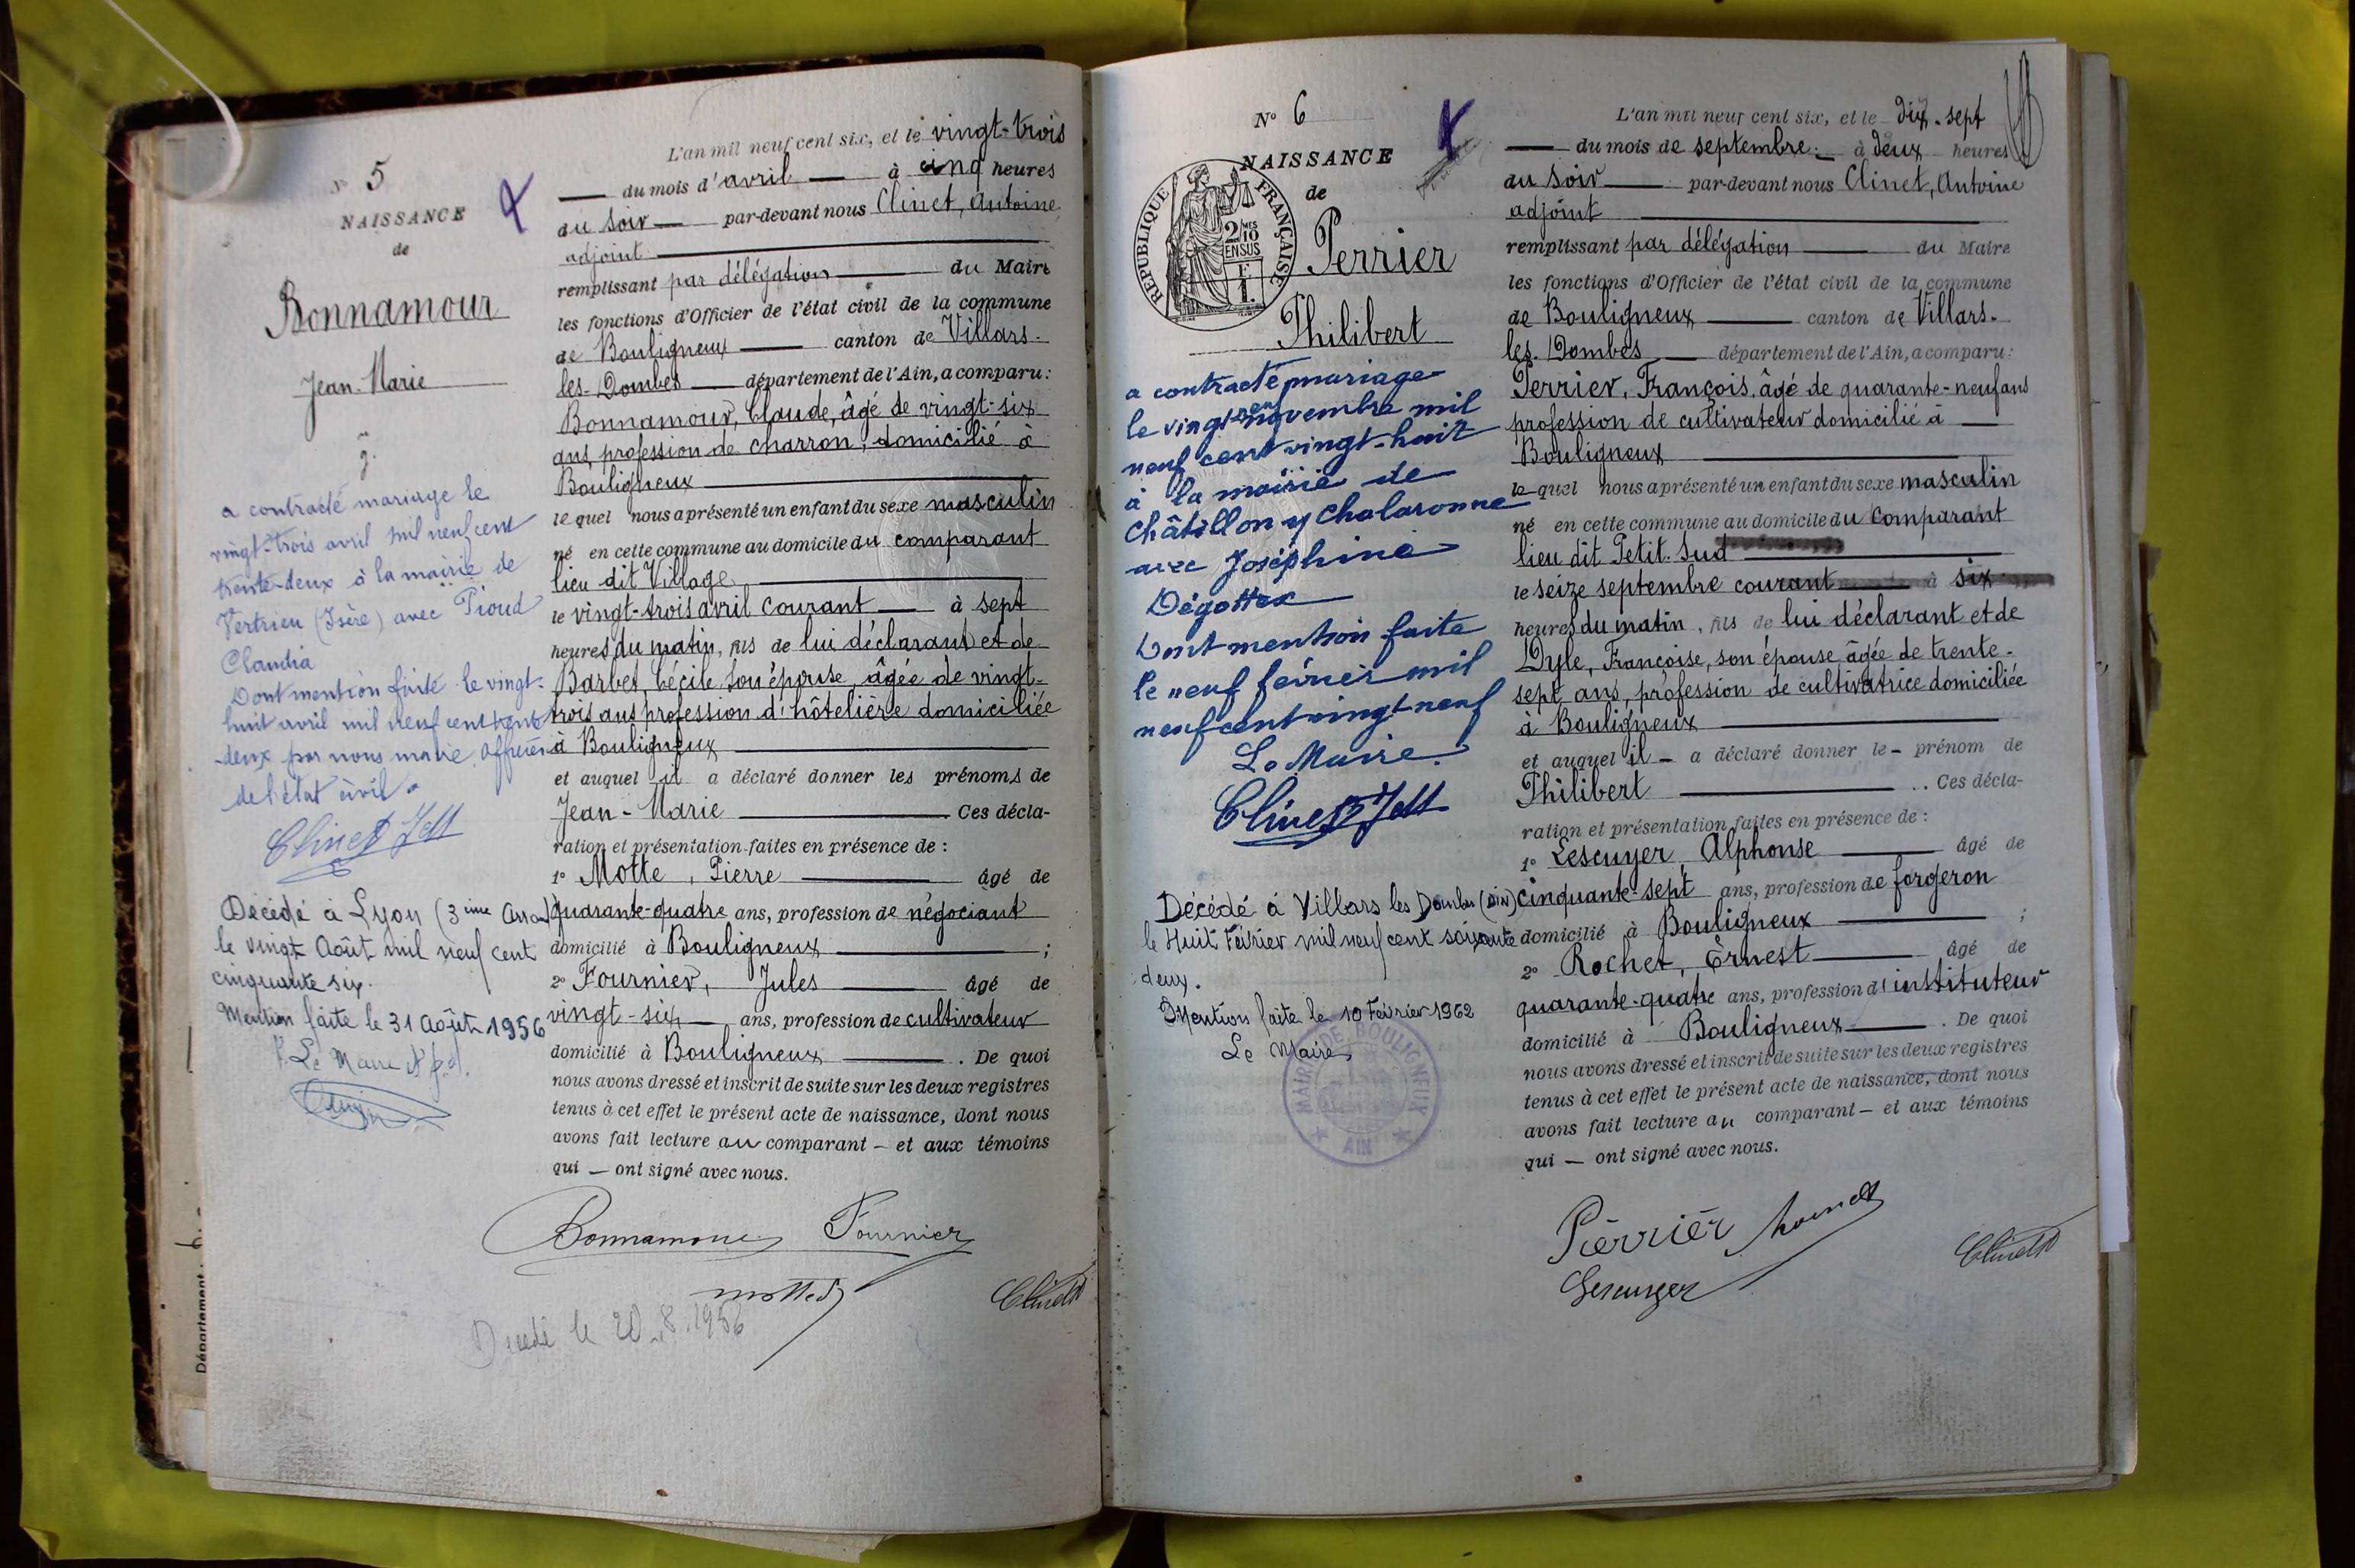 N° 5
NAISSANCE
de
Bonnamour
Jean-Marie
a contracté mariage le
vingt-trois avril mil neuf cent
trente-deux à la mairie de
Vertrieu (Isère) avec Pioud
Claudia
Dont mention faite le vingt-
huit avril mil neuf cent trente
-deux par nous maire, officier
de l'état civil.
Clinet
Décédé à Lyon (3ième Arrond)
le vingt Août mil neuf cent
cinquante six.
Mention faite le 31 Août 1956
Le Maire
L'an mil neuf cent six, et le vingt-trois
du mois d'avril à cinq heures
du soir par-devant nous Clinet, Antoine
adjoint
remplissant par délégation du Maire
les fonctions d'Officier de l'état civil de la commune
de Bouligneux canton de Villars-
les-Dombes département de l'Ain, a comparu:
Bonnamour, Claude, âgé de vingt-six
ans, profession de charron, domicilié à
Bouligneux
lequel nous a présenté un enfant du sexe masculin
né en cette commune au domicile du comparant
lieu dit Village
le vingt-trois avril courant à sept
heures du matin, fils de lui déclarant et de
Barbet, Cécile son épouse, âgée de vingt-
trois ans profession d'hôtelière domiciliée
à Bouligneux
et auquel il a déclaré donner les prénoms de
Jean-Marie Ces décla-
ration et présentation faites en présence de :
1° Motte, Pierre âgé de
quarante-quatre ans, profession de négociant
domicilié à Bouligneux ;
2° Fournier, Jules âgé de
vingt-six ans, profession de cultivateur
domicilié à Bouligneux . De quoi
nous avons dressé et inscrit de suite sur les deux registres
tenus à cet effet le présent acte de naissance, dont nous
avons fait lecture au comparant – et aux témoins
qui – ont signé avec nous.
Bonnamour Fournier
Motte
Clinet
Décédé le 20.8.1956
Département :
N° 6
NAISSANCE
de
RÉPUBLIQUE FRANÇAISE
2 MES 10
EN SUS
Perrier
Philibert
a contracté mariage
le vingt-neuf novembre mil
neuf cent vingt-huit
à la mairie de
Châtillon s/ Chalaronne
avec Joséphine
Dégottex
Dont mention faite
le neuf février mil
neuf cent vingt neuf
Le Maire.
Clinet
Décédé à Villars les Dombes (Ain)
le Huit Février mil neuf cent soixante
deux.
Mention faite le 10 Février 1962
Le Maire
MAIRIE DE BOULIGNEUX
AIN
L'an mil neuf cent six, et le dix-sept
du mois de septembre à deux heures
du soir par-devant nous Clinet, Antoine
adjoint
remplissant par délégation du Maire
les fonctions d'Officier de l'état civil de la commune
de Bouligneux canton de Villars-
les-Dombes département de l'Ain, a comparu:
Perrier, François, âgé de quarante-neuf ans
profession de cultivateur domicilié à
Bouligneux
lequel nous a présenté un enfant du sexe masculin
né en cette commune au domicile du comparant
lieu dit Petit Sud
le seize septembre courant à six
heures du matin, fils de lui déclarant et de
Dyle, Françoise, son épouse, âgée de trente-
sept ans, profession de cultivatrice domiciliée
à Bouligneux
et auquel il – a déclaré donner le – prénom de
Philibert . Ces décla-
ration et présentation faites en présence de :
1° Lescuyer, Alphonse âgé de
cinquante-sept ans, profession de forgeron
domicilié à Bouligneux ;
2° Rochet, Ernest âgé de
quarante-quatre ans, profession d'instituteur
domicilié à Bouligneux . De quoi
nous avons dressé et inscrit de suite sur les deux registres
tenus à cet effet le présent acte de naissance, dont nous
avons fait lecture au comparant – et aux témoins
qui – ont signé avec nous.
Pèrrièr
Lescuyer
Clinet